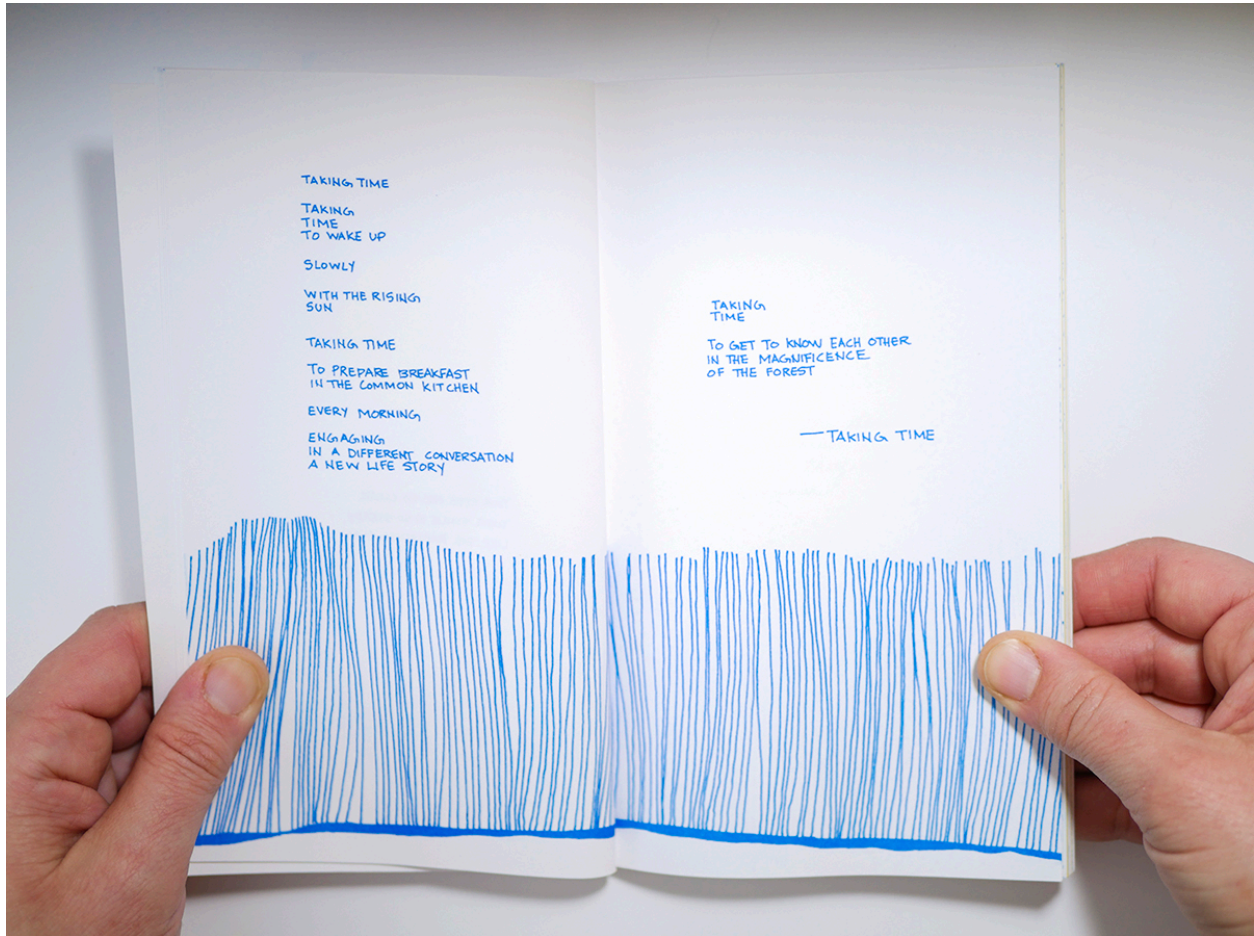 TAKING TIME
TAKING
TIME
TO WAKE UP
SLOWLY
WITH THE RISING
SUN
TAKING TIME
TO PREPARE BREAKFAST
IN THE COMMON KITCHEN
EVERY MORNING
ENGAGING
IN A DIFFERENT CONVERSATION
A NEW LIFE STORY
TAKING
TIME
TO GET TO KNOW EACH OTHER
IN THE MAGNIFICENCE
OF THE FOREST
— TAKING TIME